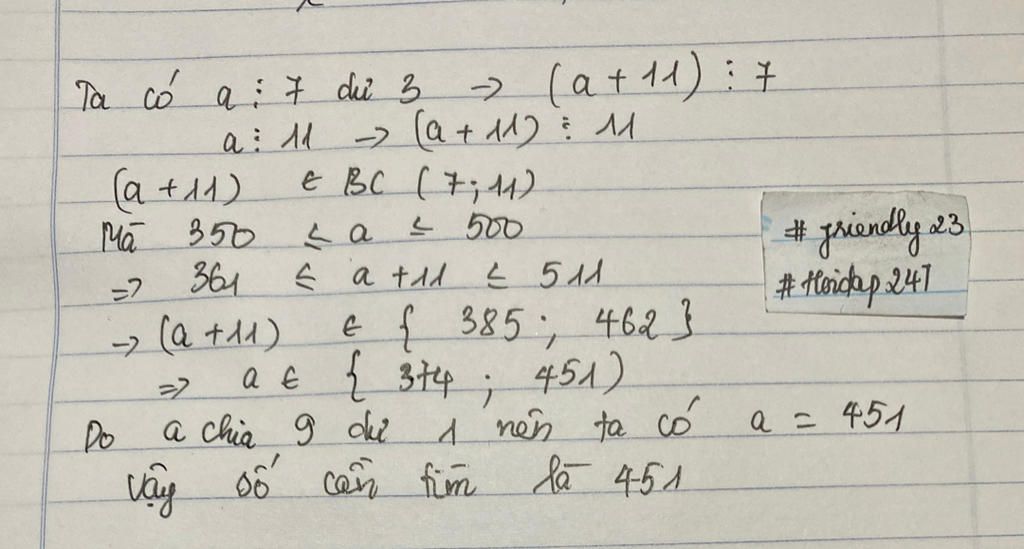 Ta có a ⋮ 7 dư 3 → (a + 11) ⋮ 7
a ⋮ 11 → (a + 11) ⋮ 11
(a + 11) ∈ BC (7; 11)
Mà 350 ≤ a ≤ 500
=> 361 ≤ a + 11 ≤ 511
→ (a + 11) ∈ { 385 ; 462 }
=> a ∈ { 374 ; 451 )
Do a chia 9 dư 1 nên ta có a = 451
Vậy số cần tìm là 451
# friendly 23
# Hoidap 247